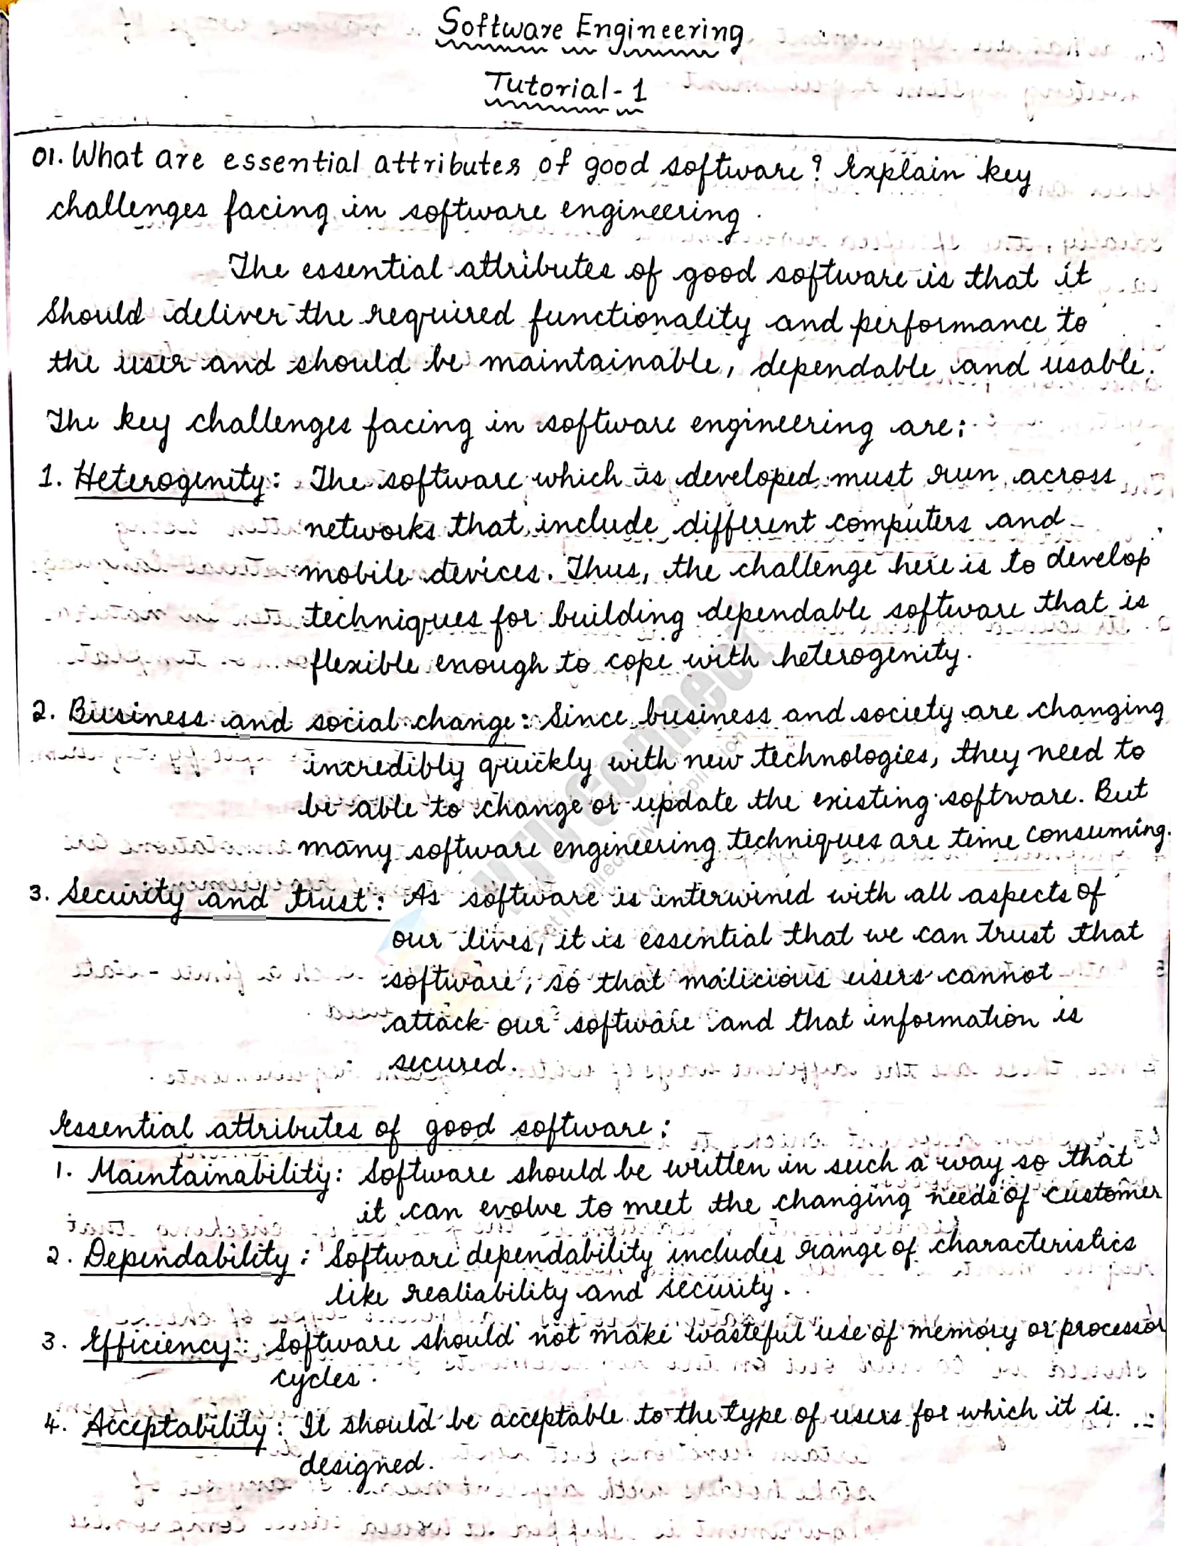 Software Engineering
Tutorial-1
01. What are essential attributes of good software? Explain key
challenges facing in software engineering.
The essential attributes of good software is that it
should deliver the required functionality and performance to
the user and should be maintainable, dependable and usable.
The key challenges facing in software engineering are:
1. Heterogenity: The software which is developed must run across
networks that include different computers and
mobile devices. Thus, the challenge here is to develop
techniques for building dependable software that is
flexible enough to cope with heterogenity.
2. Business and social change: Since business and society are changing
incredibly quickly with new technologies, they need to
be able to change or update the existing software. But
many software engineering techniques are time consuming.
3. Security and trust: As software is interwined with all aspects of
our lives, it is essential that we can trust that
software, so that malicious users cannot
attack our software and that information is
secured.
Essential attributes of good software:
1. Maintainability: Software should be written in such a way so that
it can evolve to meet the changing needs of customer
2. Dependability: Software dependability includes range of characteristics
like realiability and security.
3. Efficiency: Software should not make wasteful use of memory or processor
cycles.
4. Acceptability: It should be acceptable to the type of users for which it is
designed.